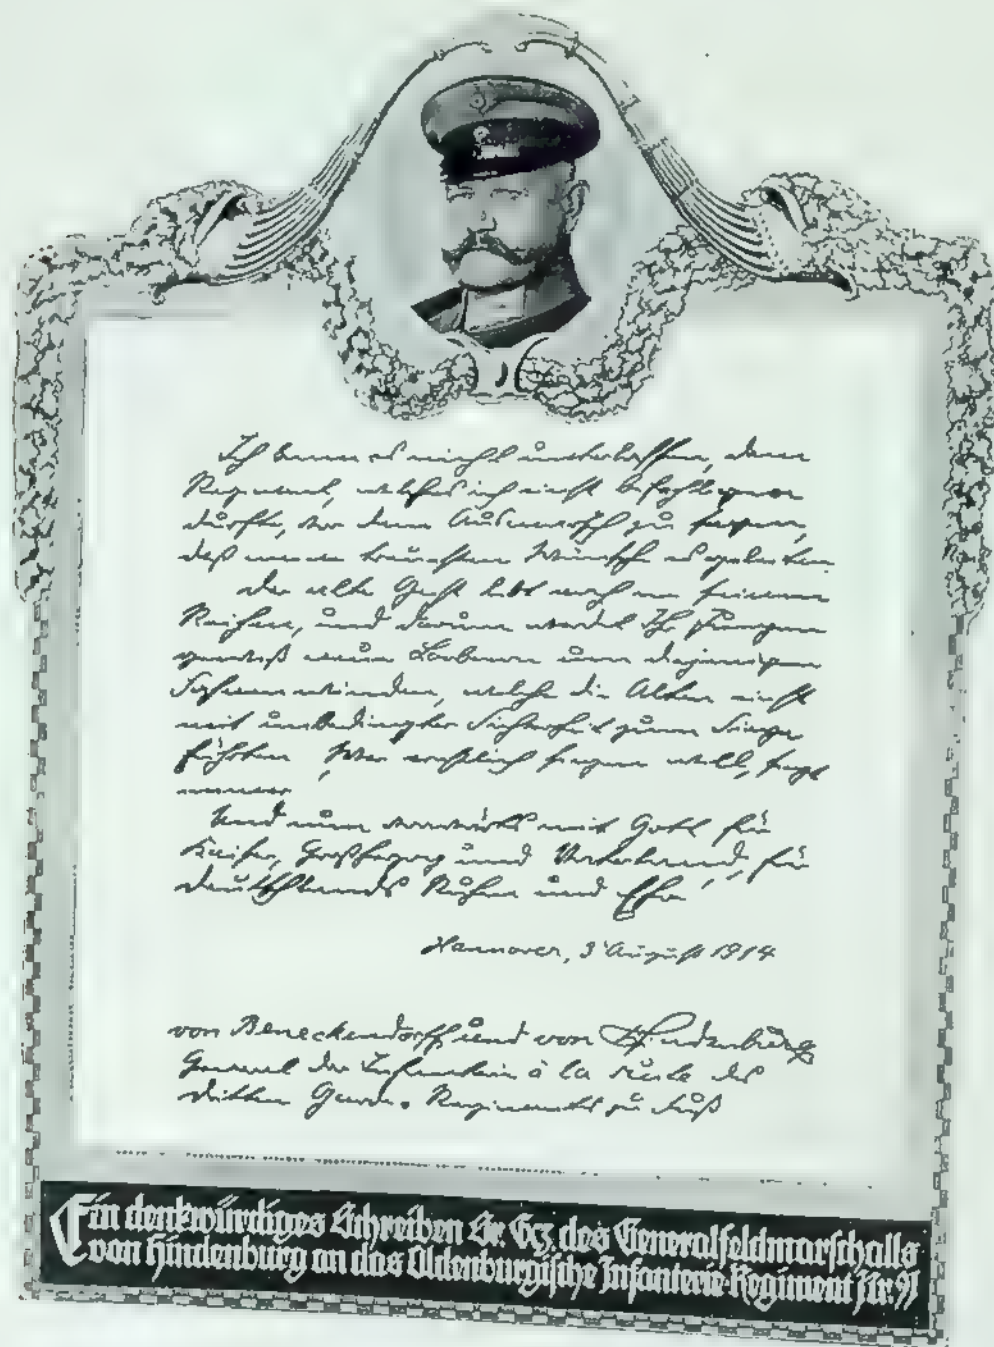 Ich kann es nicht unterlassen, dem
Regiment, welches ich einst befehligen
durfte, vor dem Ausmarsch zu sagen,
daß meine treuesten Wünsche es geleiten.
Der alte Geist lebt noch in seinen
Reihen, und darum werdet Ihr Jungen
gewiß neue Lorbeeren um diejenigen
Fahnen winden, welche die Alten einst
mit unbedingter Sicherheit zum Siege
führten. Wer ernstlich siegen will, siegt
immer
Und nun vorwärts mit Gott für
Kaiser, Großherzog und Vaterland, für
Deutschlands Ruhm und Ehre
Hannover, 3 August 1914
von Beneckendorff und von Hindenburg
General der Infanterie à la suite des
dritten Garde-Regiments zu Fuß
Ein denkwürdiges Schreiben Sr. Exz. des Generalfeldmarschalls
von Hindenburg an das Oldenburgische Infanterie-Regiment Nr. 91